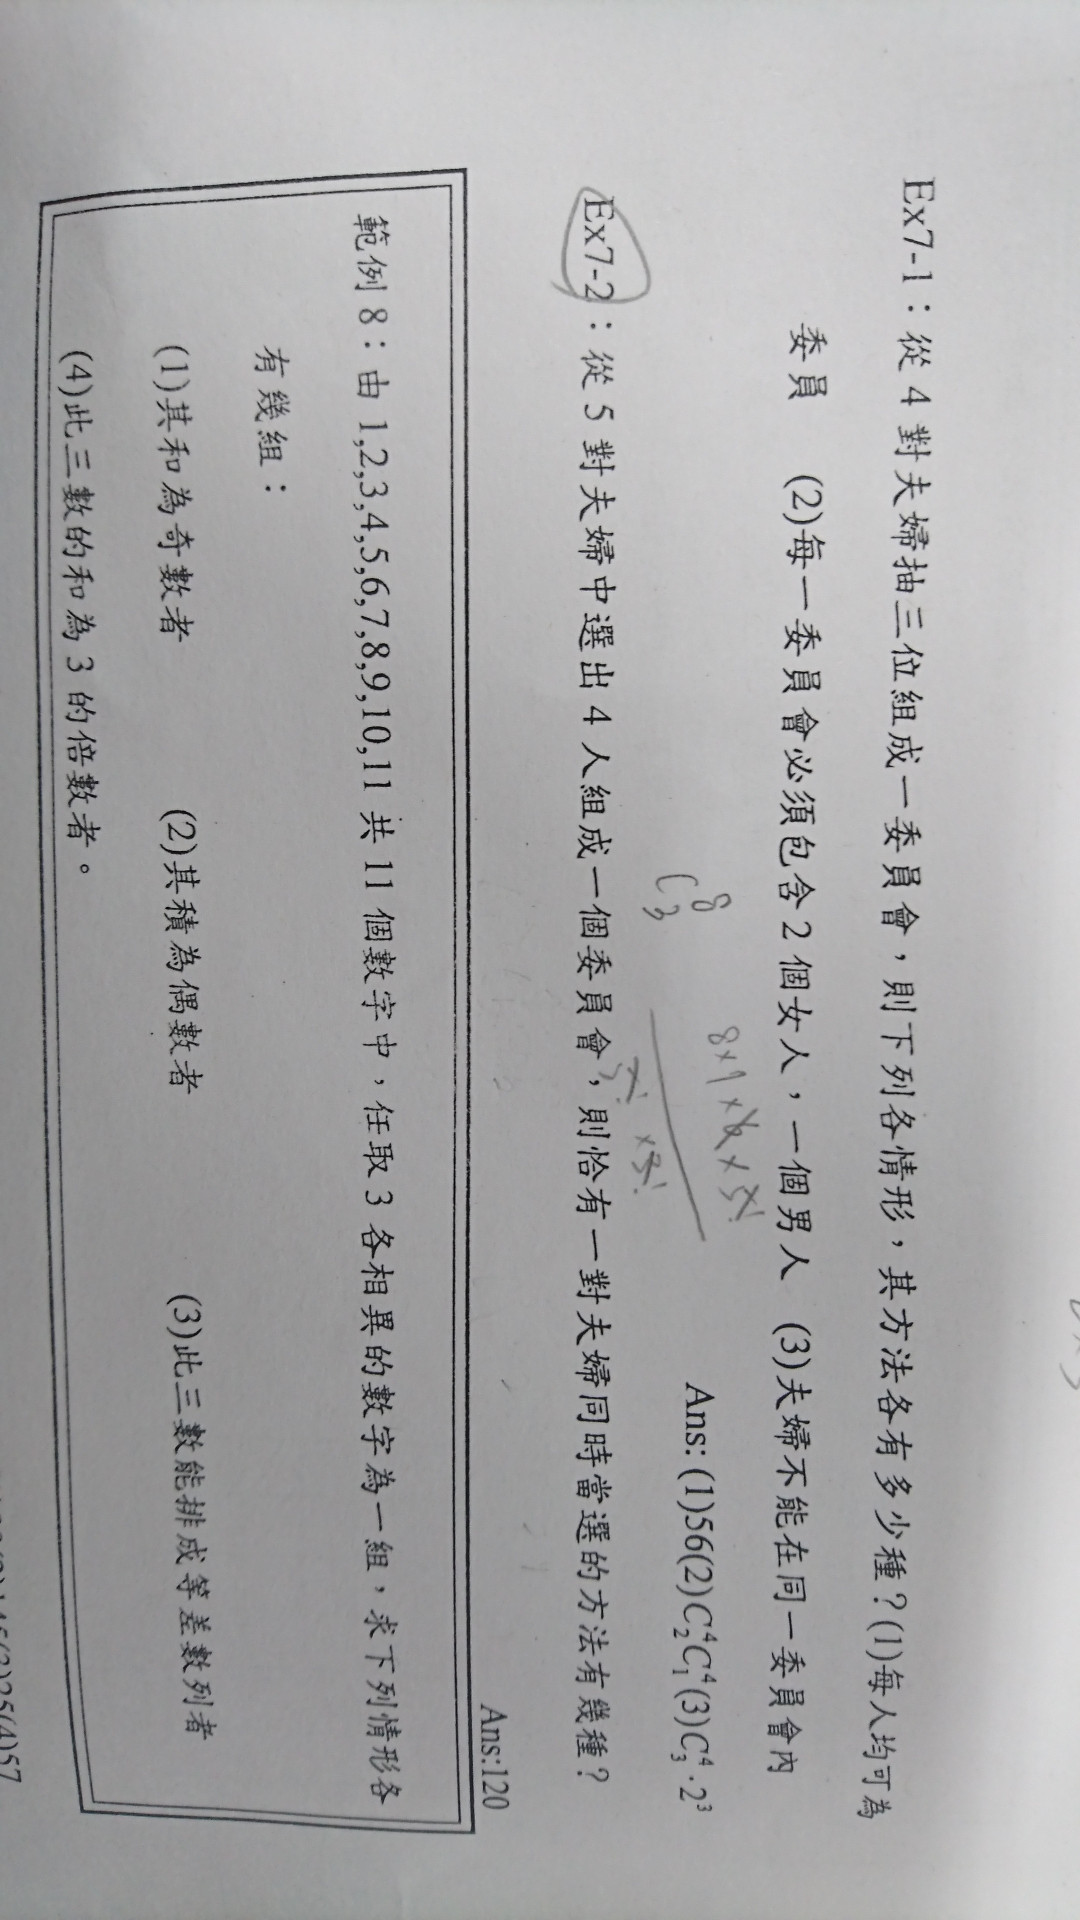 Ex7-1：從 4 對夫婦抽三位組成一委員會，則下列各情形，其方法各有多少種？(1)每人均可為
委員 (2)每一委員會必須包含 2 個女人，一個男人 (3)夫婦不能在同一委員會內
C⁸₃
Ans: (1)56(2)C⁴₂C⁴₁(3)C⁴₃·2³
Ex7-2：從 5 對夫婦中選出 4 人組成一個委員會，則恰有一對夫婦同時當選的方法有幾種？
Ans:120
範例 8：由 1,2,3,4,5,6,7,8,9,10,11 共 11 個數字中，任取 3 各相異的數字為一組，求下列情形各
有幾組：
(1)其和為奇數者 (2)其積為偶數者 (3)此三數能排成等差數列者
(4)此三數的和為 3 的倍數者。